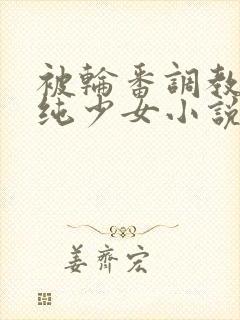 被輪番調教
纯少女小說
姜齊宏